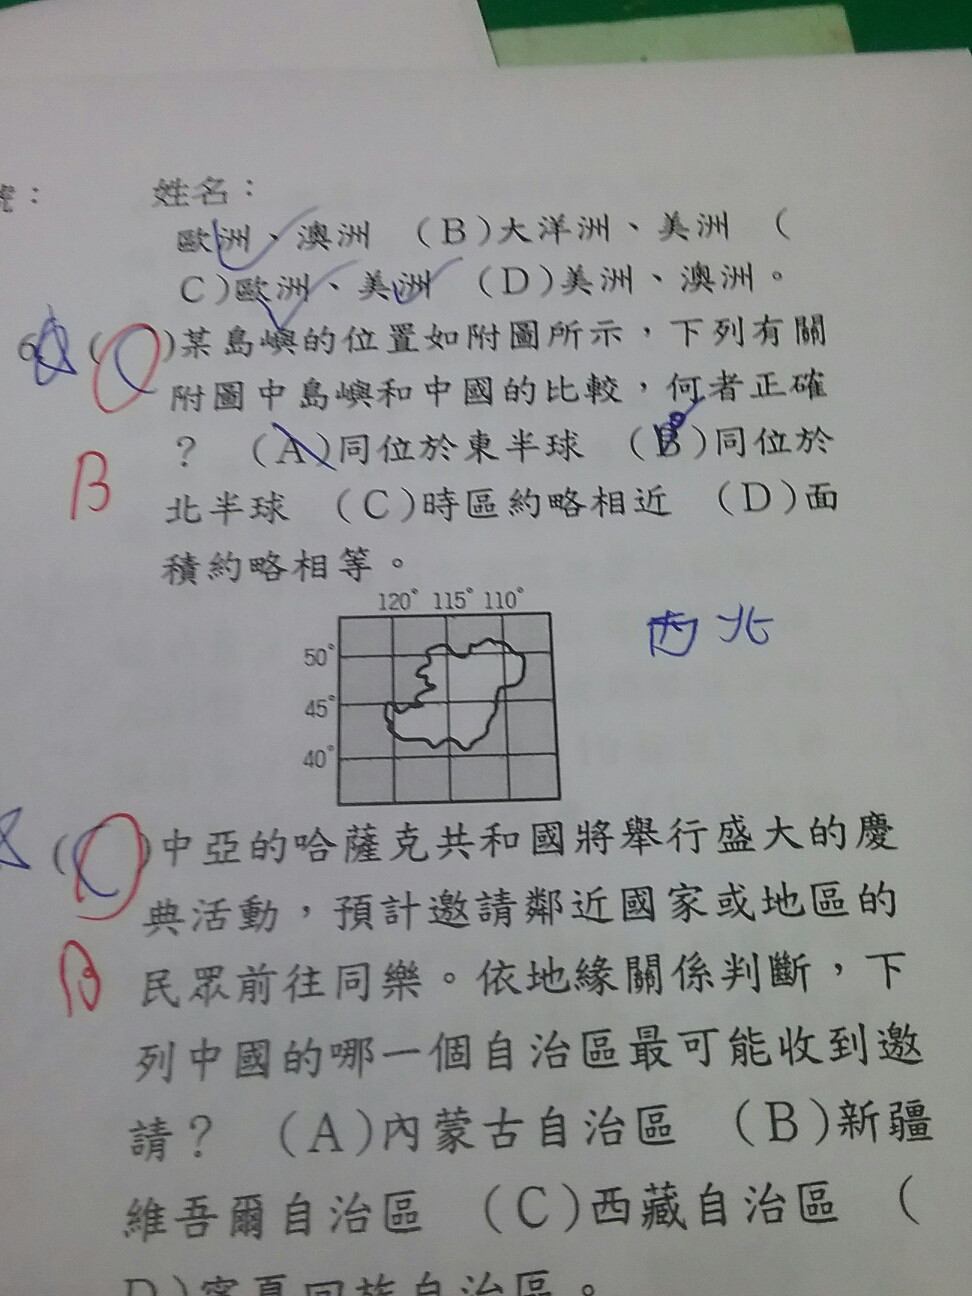 號：　姓名：
歐洲、澳洲　(B)大洋洲、美洲　(
C)歐洲、美洲　(D)美洲、澳洲。
6 (C)某島嶼的位置如附圖所示，下列有關
附圖中島嶼和中國的比較，何者正確
B　？　(A)同位於東半球　(B)同位於
北半球　(C)時區約略相近　(D)面
積約略相等。
120° 115° 110°
50°　西北
45°
40°
(C)中亞的哈薩克共和國將舉行盛大的慶
典活動，預計邀請鄰近國家或地區的
B　民眾前往同樂。依地緣關係判斷，下
列中國的哪一個自治區最可能收到邀
請？　(A)內蒙古自治區　(B)新疆
維吾爾自治區　(C)西藏自治區　(
D)寧夏回族自治區。